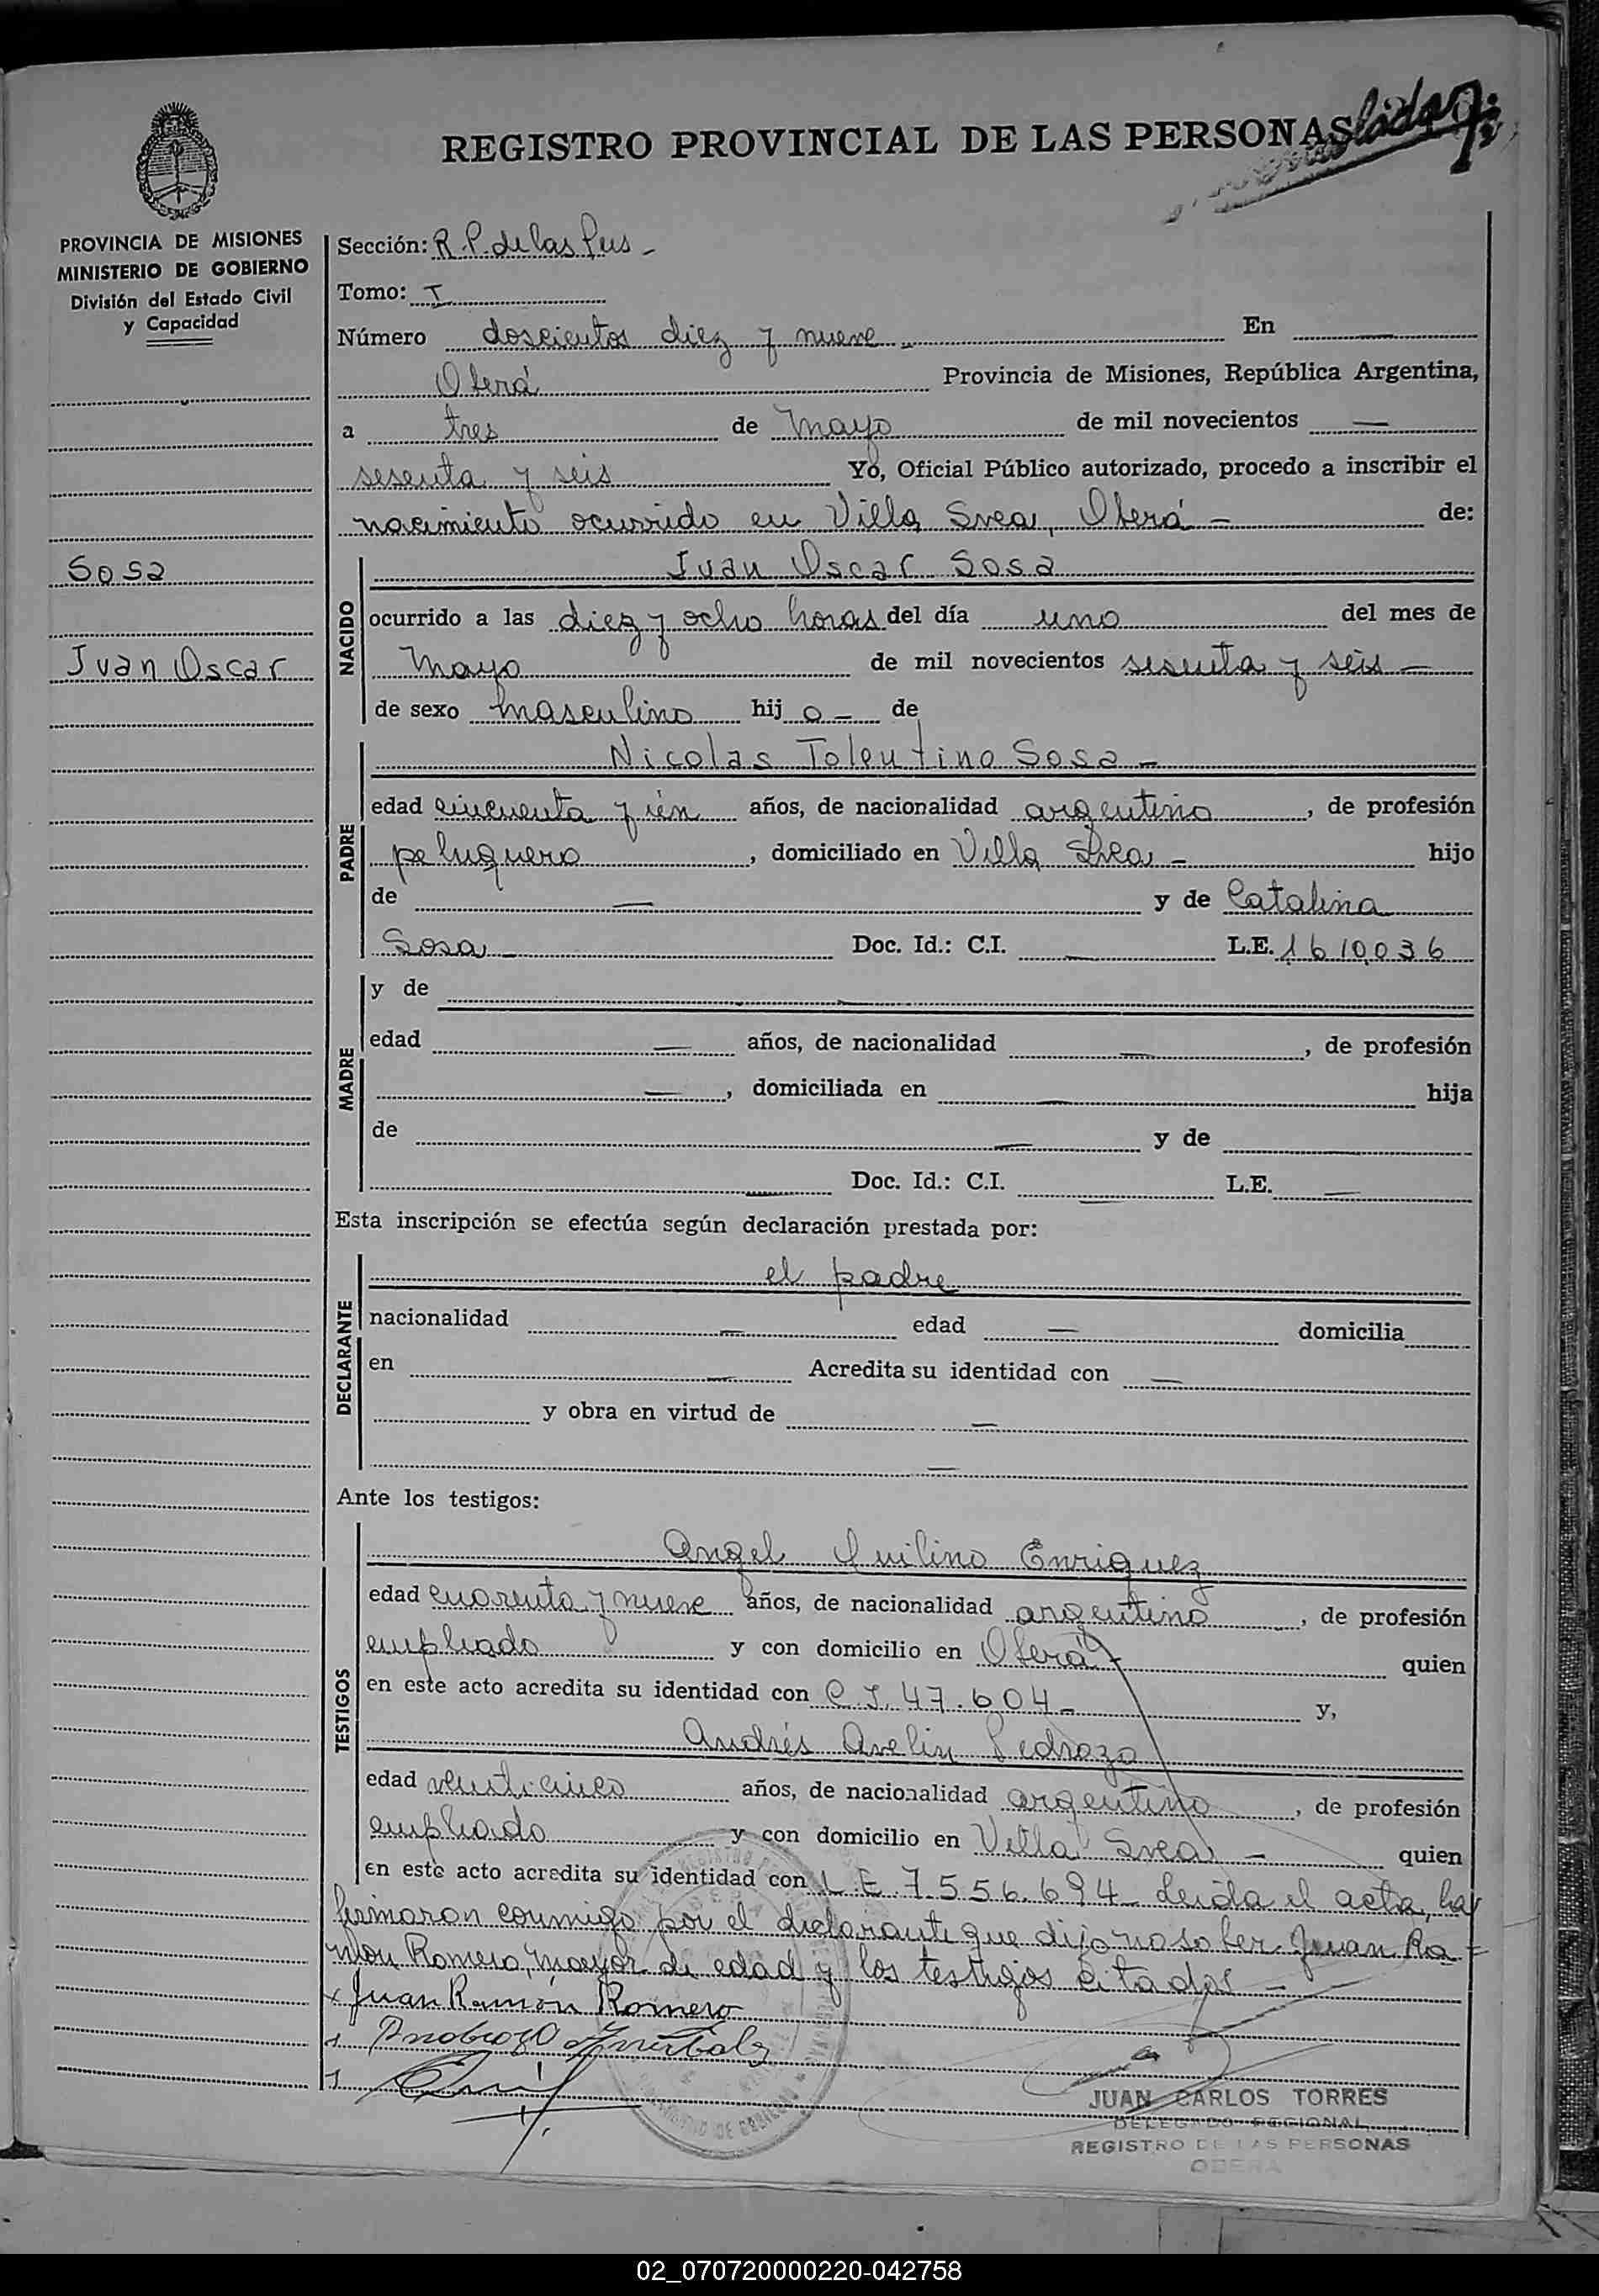 REGISTRO PROVINCIAL DE LAS PERSONAS
PROVINCIA DE MISIONES
MINISTERIO DE GOBIERNO
División del Estado Civil
y Capacidad
Sección: R.P. de las Pers -
Tomo: I
Número doscientos diez y nueve En —
Oberá Provincia de Misiones, República Argentina,
a tres de Mayo de mil novecientos —
sesenta y seis Yo, Oficial Público autorizado, procedo a inscribir el
nacimiento ocurrido en Villa Svea, Oberá - de:
Sosa
Juan Oscar
NACIDO
Juan Oscar Sosa
ocurrido a las diez y ocho horas del día uno del mes de
Mayo de mil novecientos sesenta y seis -
de sexo masculino hij o - de
PADRE
Nicolas Tolentino Sosa -
edad cincuenta y años, de nacionalidad argentino, de profesión
peluquero, domiciliado en Villa Svea - hijo
de — y de Catalina
Sosa - Doc. Id.: C.I. — L.E. 1610036
MADRE
y de —
edad — años, de nacionalidad —, de profesión
—, domiciliada en — hija
de — y de
— Doc. Id.: C.I. — L.E. —
Esta inscripción se efectúa según declaración prestada por:
DECLARANTE
el padre
nacionalidad — edad — domicilia
en — Acredita su identidad con —
y obra en virtud de —
—
Ante los testigos:
TESTIGOS
Angel Enriquez
edad cuarenta y nueve años, de nacionalidad argentino, de profesión
empleado y con domicilio en Oberá - quien
en este acto acredita su identidad con C I. 47.604 - y,
Andrés Avelin Pedrozo
edad veinticinco años, de nacionalidad argentino, de profesión
empleado y con domicilio en Villa Svea - quien
en este acto acredita su identidad con L E 7.556.694 - Leida el acta, la
firmaron conmigo por el declarante que dijo no saber Juan Ra=
món Romero, mayor de edad y los testigos citados -
x Juan Ramón Romero
JUAN CARLOS TORRES
DELEGADO REGIONAL
REGISTRO DE LAS PERSONAS
OBERA
02_070720000220-042758